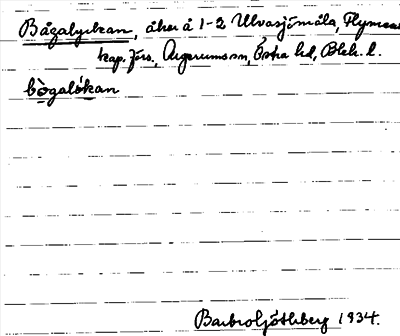 Bågalyckan, åker å 1-2 Ulvasjömåla, Flymens
kap. förs., Augerums sn, Östra hd, Blek. l.
bògalókan
Barbro Ljöthberg 1934.